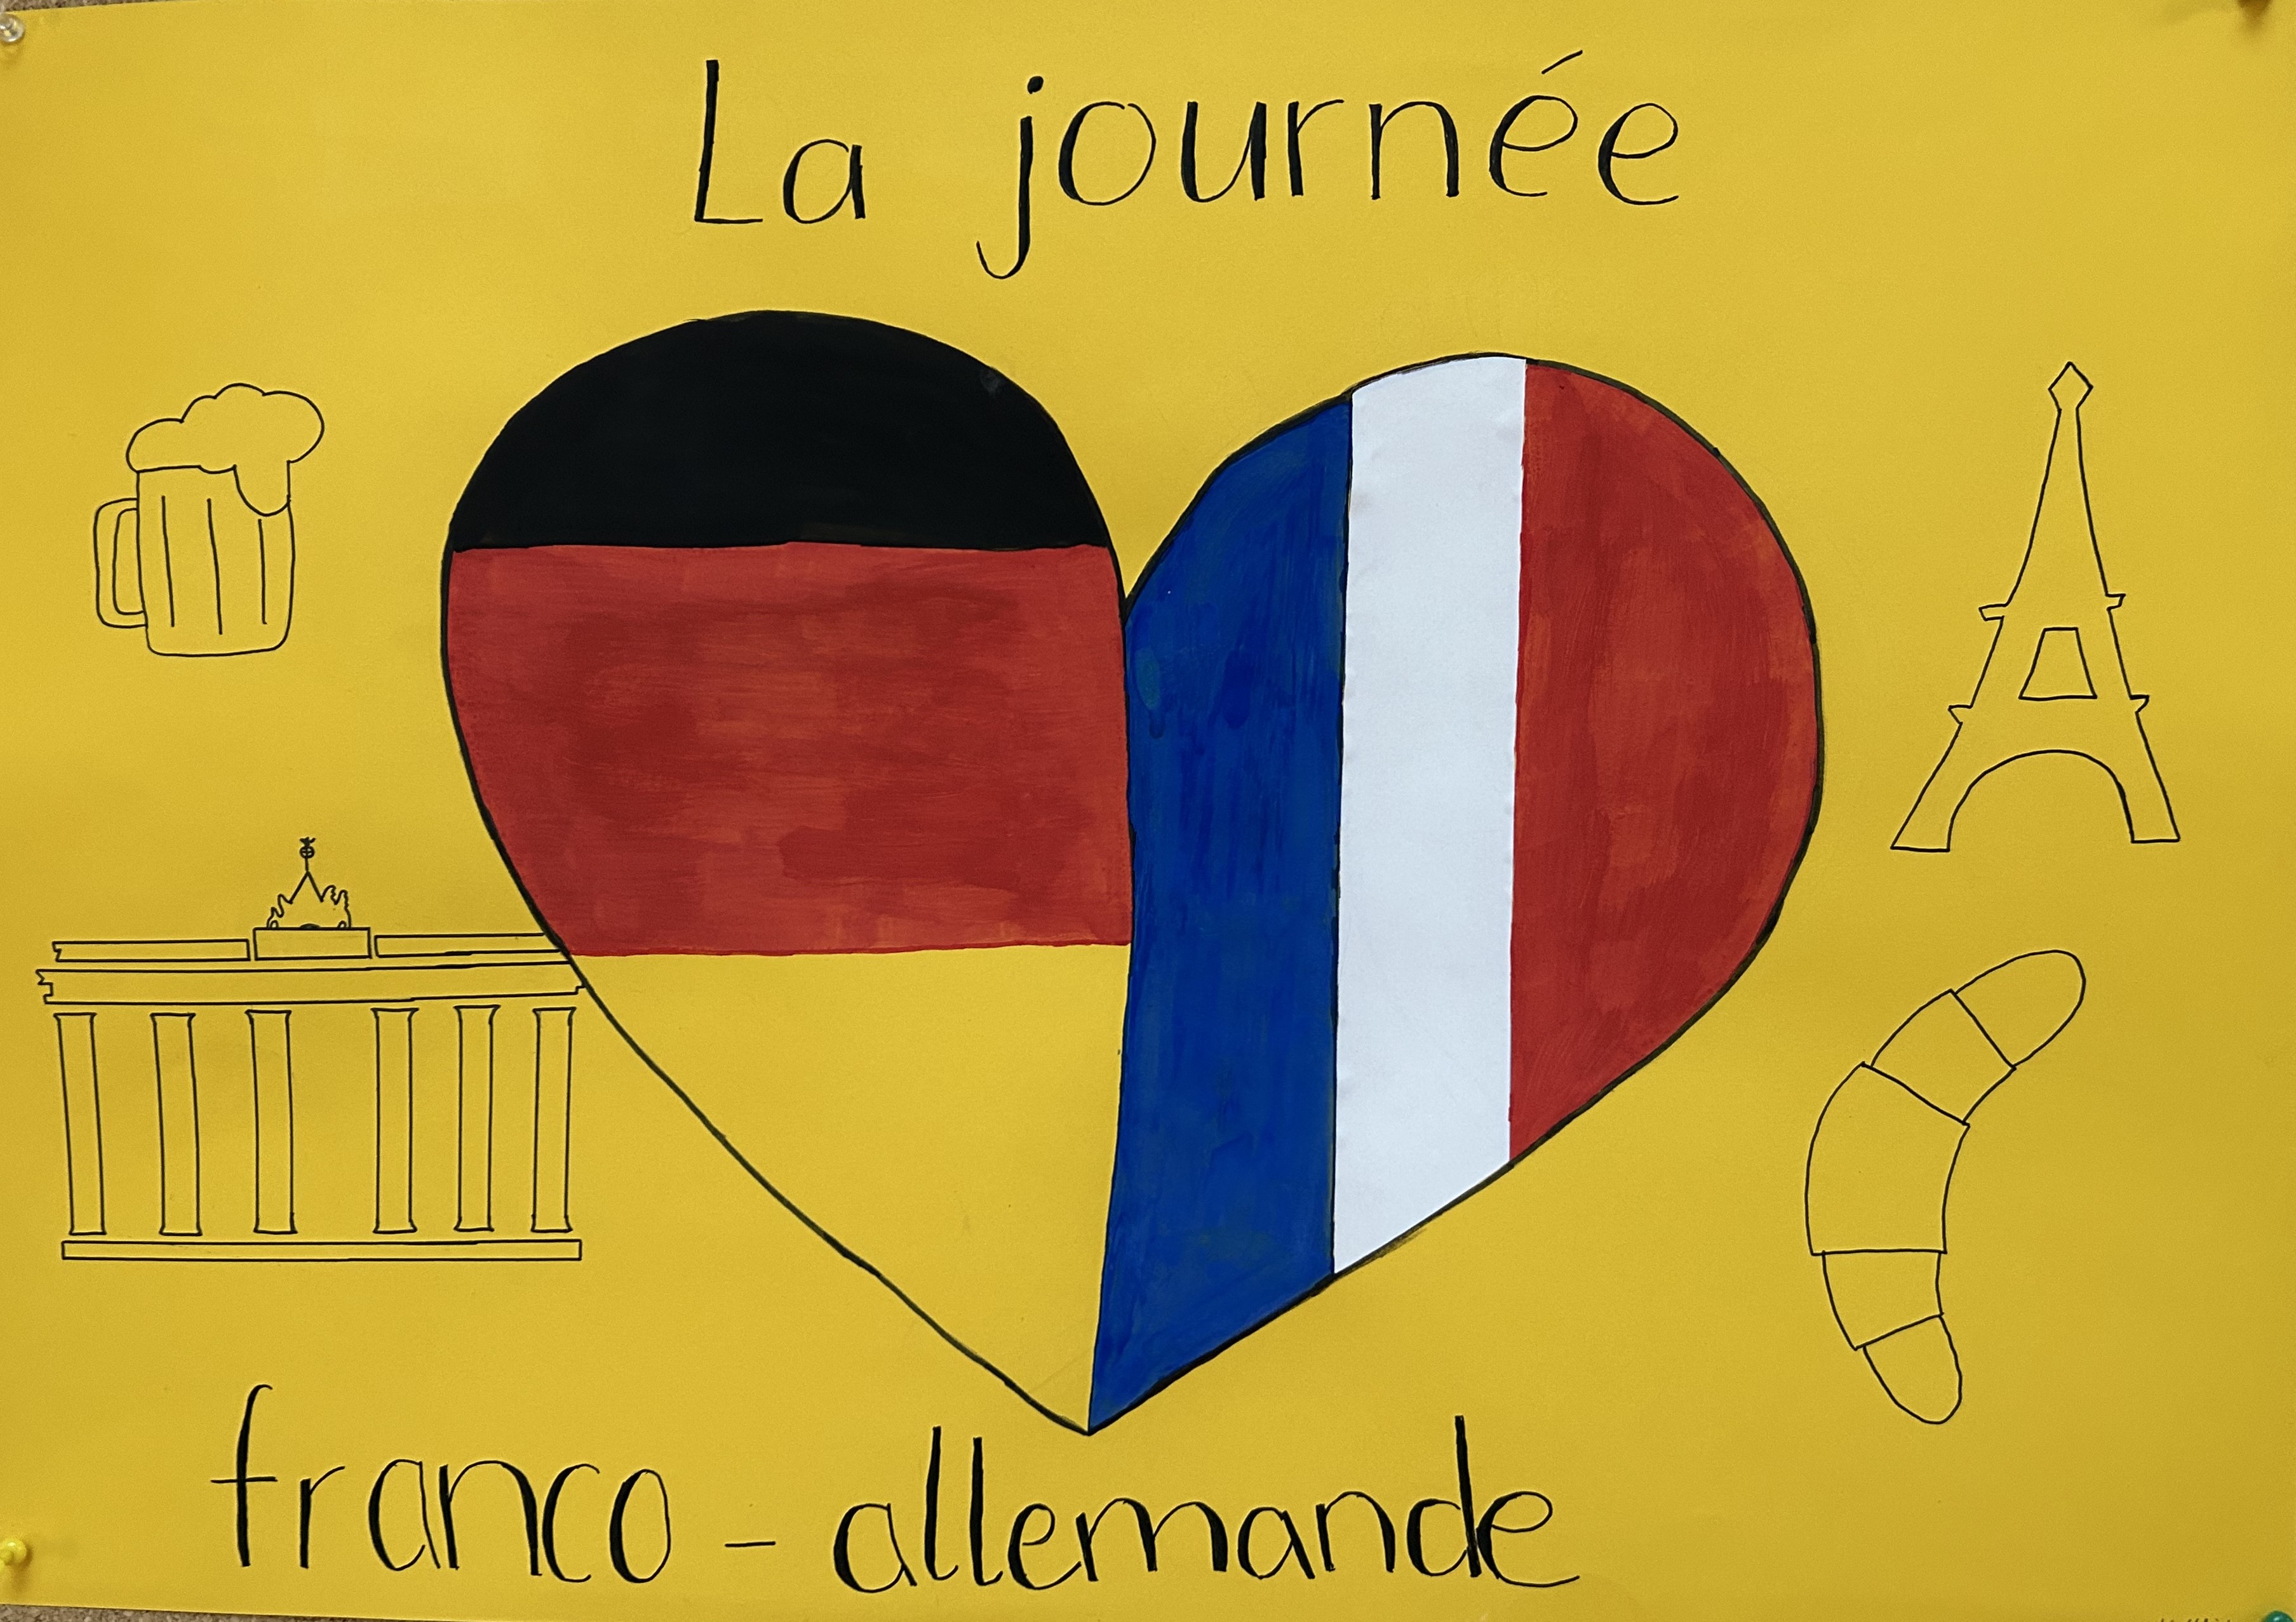 La journée
franco - allemande